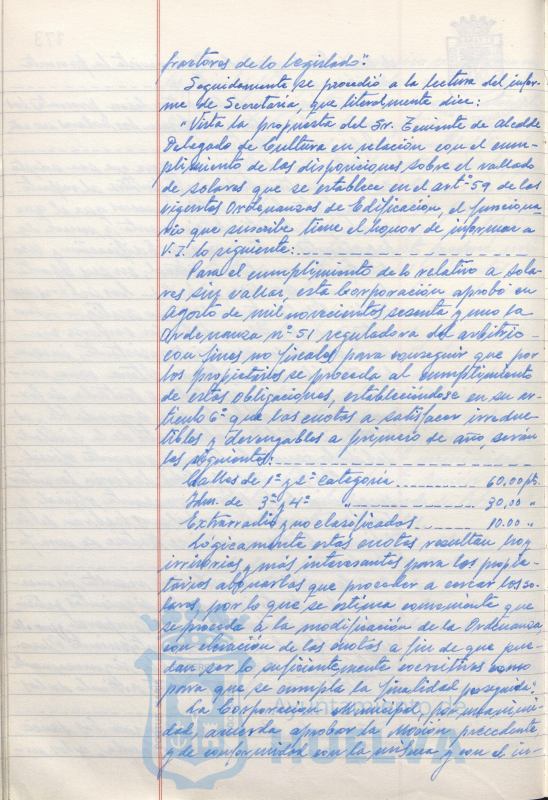 fractores de lo legislado".
Seguidamente se procedió a la lectura del infor-
me de Secretaría, que literalmente dice:
"Vista la propuesta del Sr. Teniente de Alcalde
Delegado de Cultura en relación con el cum-
plimiento de las disposiciones sobre el vallado
de solares que se establece en el artº 59 de las
vigentes Ordenanzas de Edificación, el funciona-
rio que suscribe tiene el honor de informar a
V.I. lo siguiente:
Para el cumplimiento de lo relativo a sola-
res sin vallar, esta Corporación aprobó en
Agosto de mil novecientos sesenta y uno la
Ordenanza nº 51 reguladora del arbitrio
con fines no fiscales para conseguir que por
los propietarios se proceda al cumplimiento
de estas obligaciones, estableciéndose en su ar-
tículo 6º que las cuotas a satisfacer irreduc-
tibles y devengables a primero de año, serán
las siguientes:
Calles de 1ª y 2ª Categoría 60,00 pts.
Idm. de 3ª y 4ª " 30,00 "
Extrarradio y no clasificados 10.00 "
Lógicamente estas cuotas resultan hoy
irrisorias y más interesantes para los propie-
tarios abonarlas que proceder a cercar los so-
lares, por lo que se estima conveniente que
se proceda a la modificación de la Ordenanza,
con elevación de las cuotas a fin de que pue-
dan ser lo suficientemente coercitivas como
para que se cumpla la finalidad perseguida".
La Corporación Municipal, por unanimi-
dad, acuerda aprobar la Moción precedente
y de conformidad con la misma y con el in-
Ayuntamiento de
HUELVA